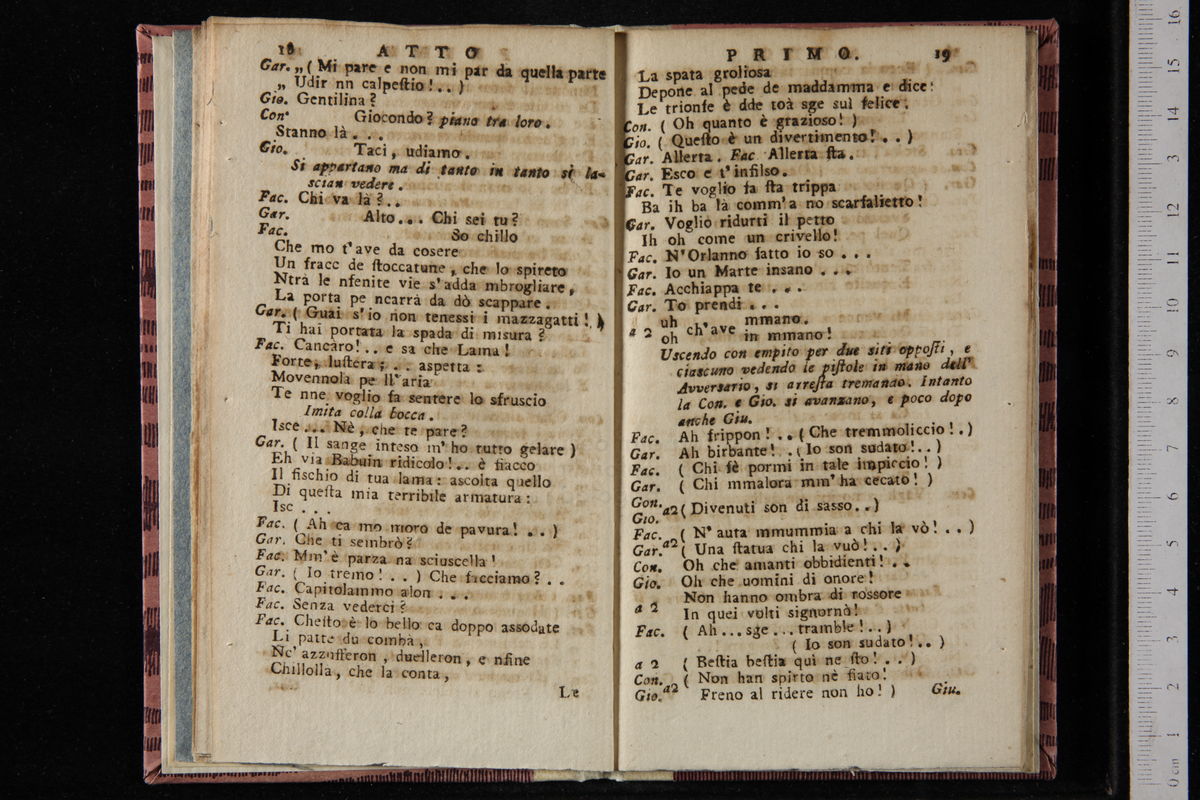 18 ATTO
Gar. „ ( Mi pare e non mi par da quella parte
„ Udir nn calpeſtio!.. )
Gio. Gentilina?
Con. Giocondo? piano tra loro.
Stanno là...
Gio. Taci, udiamo.
Si appartano ma di tanto in tanto si la-
scian vedere.
Fac. Chi va là?..
Gar. Alto... Chi sei tu?
Fac. So chillo
Che mo t'ave da cosere
Un fracc de ſtoccatune, che lo spireto
Ntrà le nfenite vie s'adda mbrogliare,
La porta pe ncarrà da dò scappare.
Gar. ( Guai s'io non tenessi i mazzagatti! )
Ti hai portata la spada di misura?
Fac. Cancaro!.. e sa che Lama!
Forte, luſtera;.. aspetta:
Movennola pe ll'aria
Te nne voglio fa sentere lo sfruscio
Imita colla bocca.
Isce... Nè, che te pare?
Gar. ( Il sange inteso m'ho tutto gelare )
Eh via Babuin ridicolo!.. è fiacco
Il fischio di tua lama: ascolta quello
Di queſta mia terribile armatura:
Isc...
Fac. ( Ah ca mo moro de pavura!.. )
Gar. Che ti sembrò?
Fac. Mm'è parza na sciuscella!
Gar. ( Io tremo!.. ) Che facciamo?..
Fac. Capitolammo alon...
Fac. Senza vederci?
Fac. Cheſto è lo bello ca doppo assodate
Li patte du combà,
Nc'azzufferon, duelleron, e nfine
Chillolla, che la conta,
Le
PRIMO. 19
La spata groliosa
Depone al pede de maddamma e dice:
Le trionfe è dde toà sge sui felice.
Con. ( Oh quanto è grazioso! )
Gio. ( Queſto è un divertimento!.. )
Gar. Allerta. Fac Allerta ſta.
Gar. Esco e t'infilso.
Fac. Te voglio fa ſta trippa
Ba ih ba là comm'a no scarfalietto!
Gar. Voglio ridurti il petto
Ih oh come un crivello!
Fac. N'Orlanno fatto io so...
Gar. Io un Marte insano...
Fac. Acchiappa te...
Gar. To prendi...
a 2 uh ch'ave mmano.
oh in mmano!
Uscendo con empito per due siti oppoſti, e
ciascuno vedendo le piſtole in mano dell'
Avversario, si arreſta tremando. Intanto
la Con. e Gio. si avanzano, e poco dopo
anche Giu.
Fac. Ah frippon!.. ( Che tremmoliccio!. )
Gar. Ah birbante!.. ( Io son sudato!.. )
Fac. ( Chi fè pormi in tale impiccio! )
Gar. ( Chi mmalora mm'ha cecato! )
Gon. Gio. a2 ( Divenuti son di sasso.. )
Fac. ( N'auta mmummia a chi la vò!.. )
Gar. a2 ( Una ſtatua chi la vuò!.. )
Con. Oh che amanti obbidienti!..
Gio. Oh che uomini di onore!
a 2 Non hanno ombra di rossore
In quei volti signornò!
Fac. ( Ah... sge... tramble!.. )
( Io son sudato!.. )
a 2 ( Beſtia beſtia quì ne ſto!.. )
Con. ( Non han spirto nè fiato!
Gio. a2 Freno al ridere non ho! )
Giu.